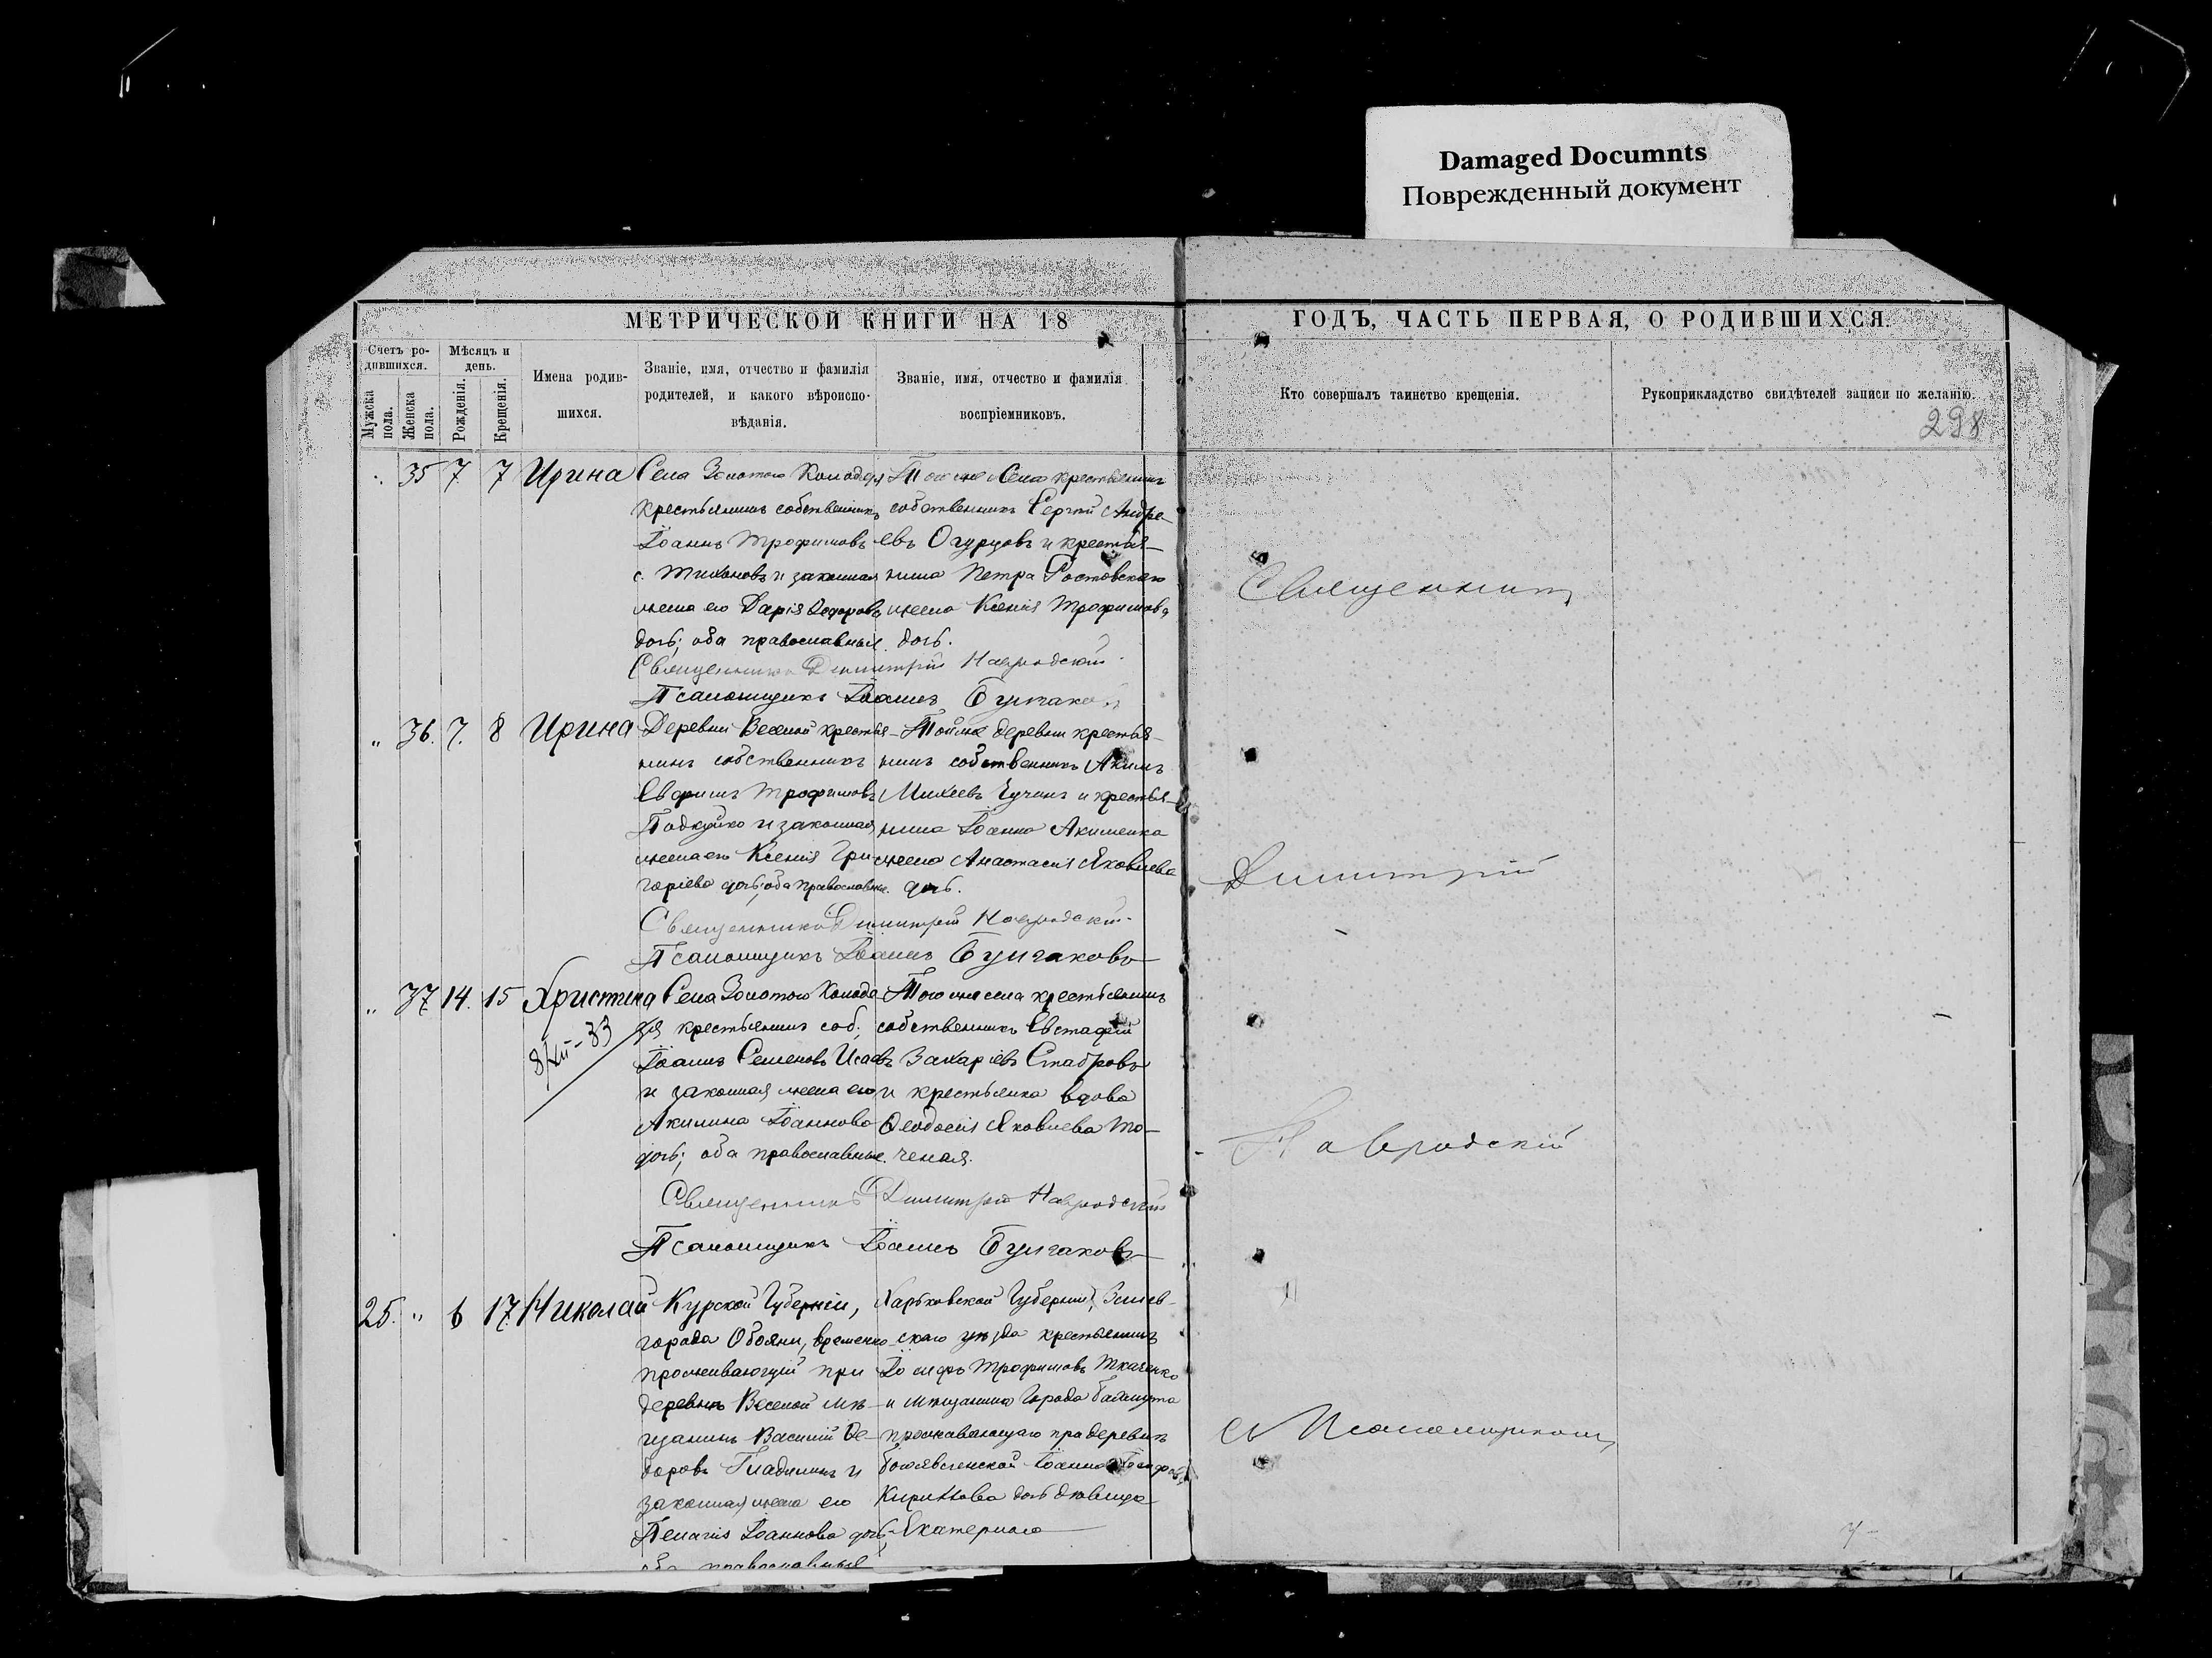 Damaged Documnts
Поврежденный документ
МЕТРИЧЕСКОЙ КНИГИ НА 18
ГОДЪ, ЧАСТЬ ПЕРВАЯ, О РОДИВШИХСЯ.
Счетъ ро-
дившихся.
Мужска пола.
Женска пола.
Мѣсяцъ и
день.
Рожденія.
Крещенія.
Имена родив-
шихся.
Званіе, имя, отчество и фамилія
родителей, и какого вѣроиспо-
вѣданія.
Званіе, имя, отчество и фамилія
воспріемниковъ.
Кто совершалъ таинство крещенія.
Рукоприкладство свидѣтелей записи по желанію.
298
35 7 7 Ирина
Села Золотого Колодезя
крестьянинъ собственникъ
Іоаннъ Трофимовъ
с. Тихоновъ и законная
жена его Дарія Ѳедорова
дочь; оба православные.
Того же Села крестьянинъ
собственникъ Сергій Андре-
евъ Огурцовъ и крестья-
нина Петра Ростовскаго
жена Ксенія Трофимова
дочь.
Священникъ Димитрій Навродскій
Псаломщикъ Іоаннъ Булгаковъ
" 36. 7. 8 Ирина
Деревни Веселой крестья-
нинъ собственникъ
Евфимъ Трофимовъ
и законная
жена его Ксенія Гри
горіева дочь; оба православные.
Той же деревни крестья-
нинъ собственникъ Акимъ
Михеевъ Чучинъ и крестья-
нина Іоанна Акименка
жена Анастасія Яковлева
дочь.
Священникъ Димитрій Навродскій
Псаломщикъ Іоаннъ Булгаковъ
" 37 14. 15 Христина
8/XII-33
Села Золотого Колоде-
зя крестьянинъ соб.
Іоаннъ Семеновъ Исаевъ
и законная жена его
Акилина Іоаннова
дочь; оба православные.
Того же села крестьянинъ
собственникъ Евстафій
Захаріевъ Ставровъ
и крестьянка вдова
Ѳеодосія Яковлева То-
ченая.
Священникъ Димитрій Навродскій
Псаломщикъ Іоаннъ Булгаковъ
25. " 6 17. Николай
Курской Губерніи,
города Обояни, временно
проживающій при
деревнѣ Веселой мѣ-
щанинъ Василій Ѳе-
доровъ Гладилинъ и
законная жена его
Пелагія Іоаннова дочь,
оба православные
Харьковской Губерніи, Зміев-
скаго уѣзда крестьянинъ
Іосифъ Трофимовъ Ткаченко
и мѣщанина Города Бахмута
проживающаго при деревнѣ
Богоявленской Іоанна
Кириллова дочь дѣвица
Екатерина
Священникъ
Димитрій
Навродскій
съ Псаломщикомъ